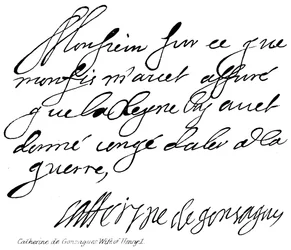 Monsieur sur ce que
mon fis m'avet assuré
que la Reyne luy avet
donné congé daler a la
guerre,
Catterine de gonsagues
Catherine de Gonzague: Wife of Henry I.